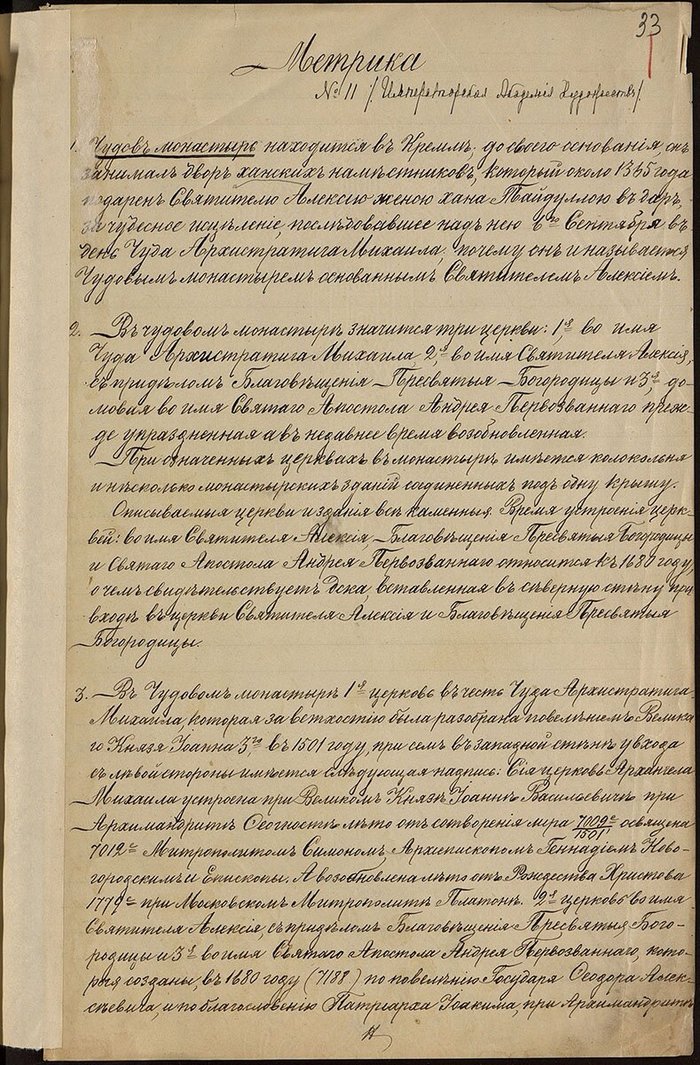 33
Метрика
№ 11 /. Императорская Академія Художествъ/.
1. Чудовъ монастырь находится въ Кремлѣ; до своего основанія, онъ
занималъ дворъ ханскихъ намѣстниковъ, который около 1365 года
подаренъ Святителю Алексію женою хана Тайдуллою въ даръ,
за чудесное исцѣленіе, послѣдовавшее надъ нею 6го Сентября въ
день Чуда Архистратига Михаила; почему онъ и называется
Чудовымъ монастыремъ основаннымъ Святителемъ Алексіемъ.
2. Въ чудовомъ монастырѣ значится три церкви: 1я, во имя
Чуда Архистратига Михаила 2,я во имя Святителя Алексія,
съ придѣломъ Благовѣщенія Пресвятыя Богородицы и 3,я до-
мовая во имя Святаго Апостола Андрея Первозваннаго преж-
де упраздненная а въ недавнее время возобновленная.
При означенныхъ церквахъ въ монастырѣ имѣется колокольня
и нѣсколько монастырскихъ зданій соединенныхъ подъ одну крышу.
Описываемыя церкви и зданія всѣ каменныя. Время устроенія церк-
вей: во имя Святителя Алексія Благовѣщенія Пресвятыя Богородицы
и Святаго Апостола Андрея Первозваннаго относится къ 1680 году,
о чемъ свидѣтельствуетъ доска, вставленная въ сѣверную стѣну при
входѣ въ церкви Святителя Алексія и Благовѣщенія Пресвятыя
Богородицы.
3. Въ Чудовомъ монастырѣ 1я церковь въ честь Чуда Архистратига
Михаила, которая за ветхостію была разобрана повелѣніемъ Велика-
го Князя Іоанна 3,го въ 1501 году, при семъ въ западной стѣнѣ у входа
съ лѣвой стороны имѣется слѣдующая надпись: Сія церковь Архангела
Михаила устроена при Великомъ Князѣ Іоаннѣ Васильевичѣ при
Архимандритѣ Ѳеогностѣ лѣто отъ сотворенія мира 7009е/1501 освящена
7012е Митрополитомъ Симономъ, Архіепископомъ Геннадіемъ Ново-
городскимъ и Епископы. А возобновлена лѣто отъ Рождества Христова
1779е при Московскомъ Митрополитѣ Платонѣ. 2я церковь во имя
Святителя Алексія, съ придѣломъ Благовѣщенія Пресвятыя Бого-
родицы и 3я во имя Святаго Апостола Андрея Первозваннаго, кото-
рыя созданы, въ 1680 году (7188) по повелѣнію Государя Ѳеодора Алек-
сѣевича, и по благословенію Патріарха Іоакима, при Архимандритѣ